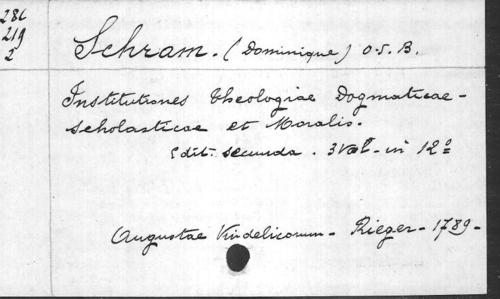 286
219
2
Schram. (Dominique) O. S. B.
Institutiones theologiae Dogmaticae-
scholasticae et Moralis.
Edit. secunda. 3 Vol. in 12º
Augustae Vindelicorum - Rieger - 1789 -